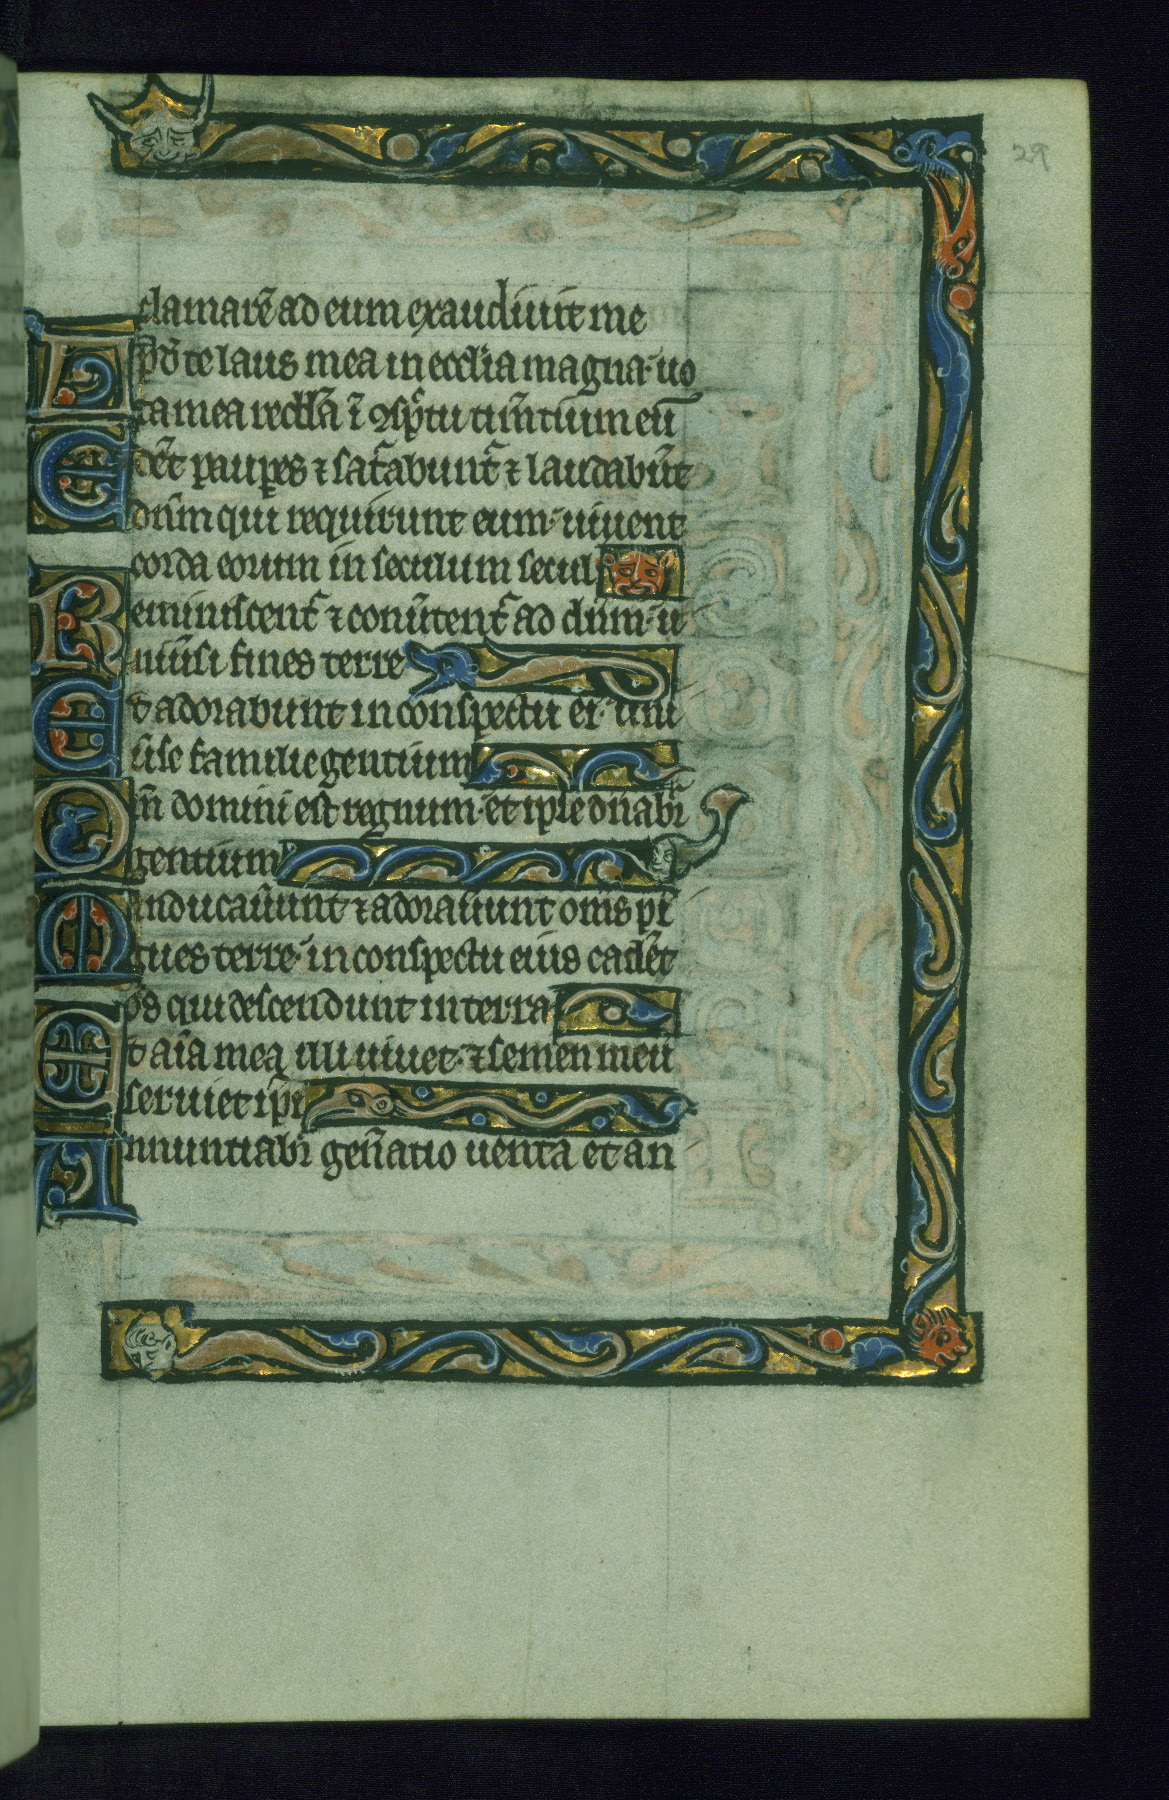 29
clamarē ad eum exaudiuit me
Apđ te laus mea in ecclīa magna· uo
ta mea reddā ī ꝯspc̄tu tim̄tium eū
Edēt paupes ⁊ sat᷑abunt᷑ ⁊ laudabūt
dn̄m qui requirunt eum· uiuent
corda eorum in seculum secul̄i
Reminiscent᷑ ⁊ conūtent᷑ ad dn̄m· u
niūsi fines terre
Et adorabunt in conspectu ei· uni
ūse familie gentium
Qm̄ domini est regnum· et ipse dn̄abr̄
gentium
Manducaūunt ⁊ adorauunt om̄s pī
gues terre· in conspectu eius cadēt
os qui descendunt in terra
Et aīa mea illi uiuet· ⁊ semen meū
seruiet ip̄i
Annuntiabr̄ gen̄atio uentā et an